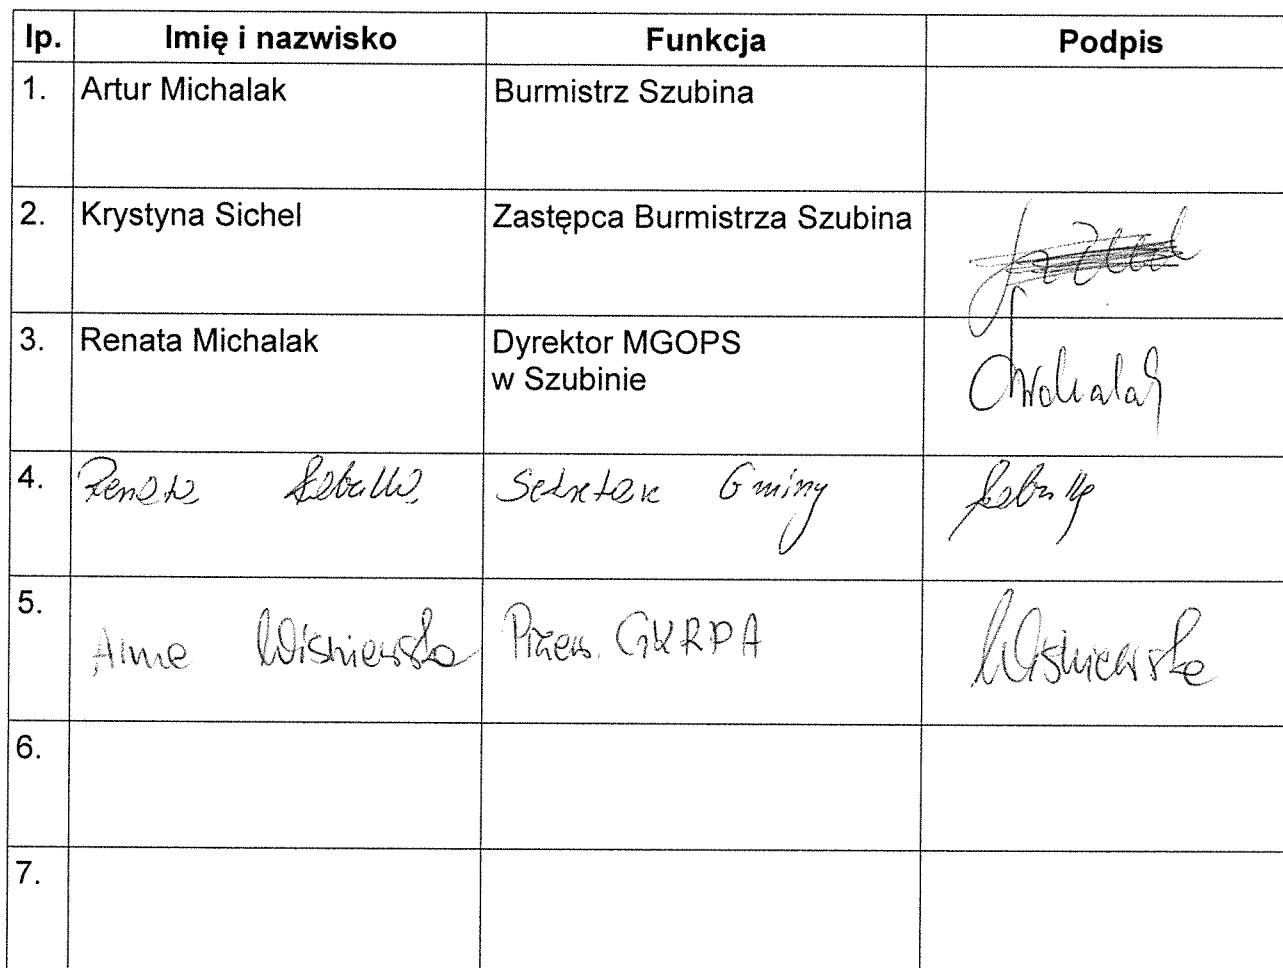 lp. Imię i nazwisko Funkcja Podpis
1. Artur Michalak Burmistrz Szubina
2. Krystyna Sichel Zastępca Burmistrza Szubina
3. Renata Michalak Dyrektor MGOPS
w Szubinie
4. Renata Sekretarz Gminy
5. Anna Wiśniewska Przew. GKRPA Wiśniewska
6.
7.